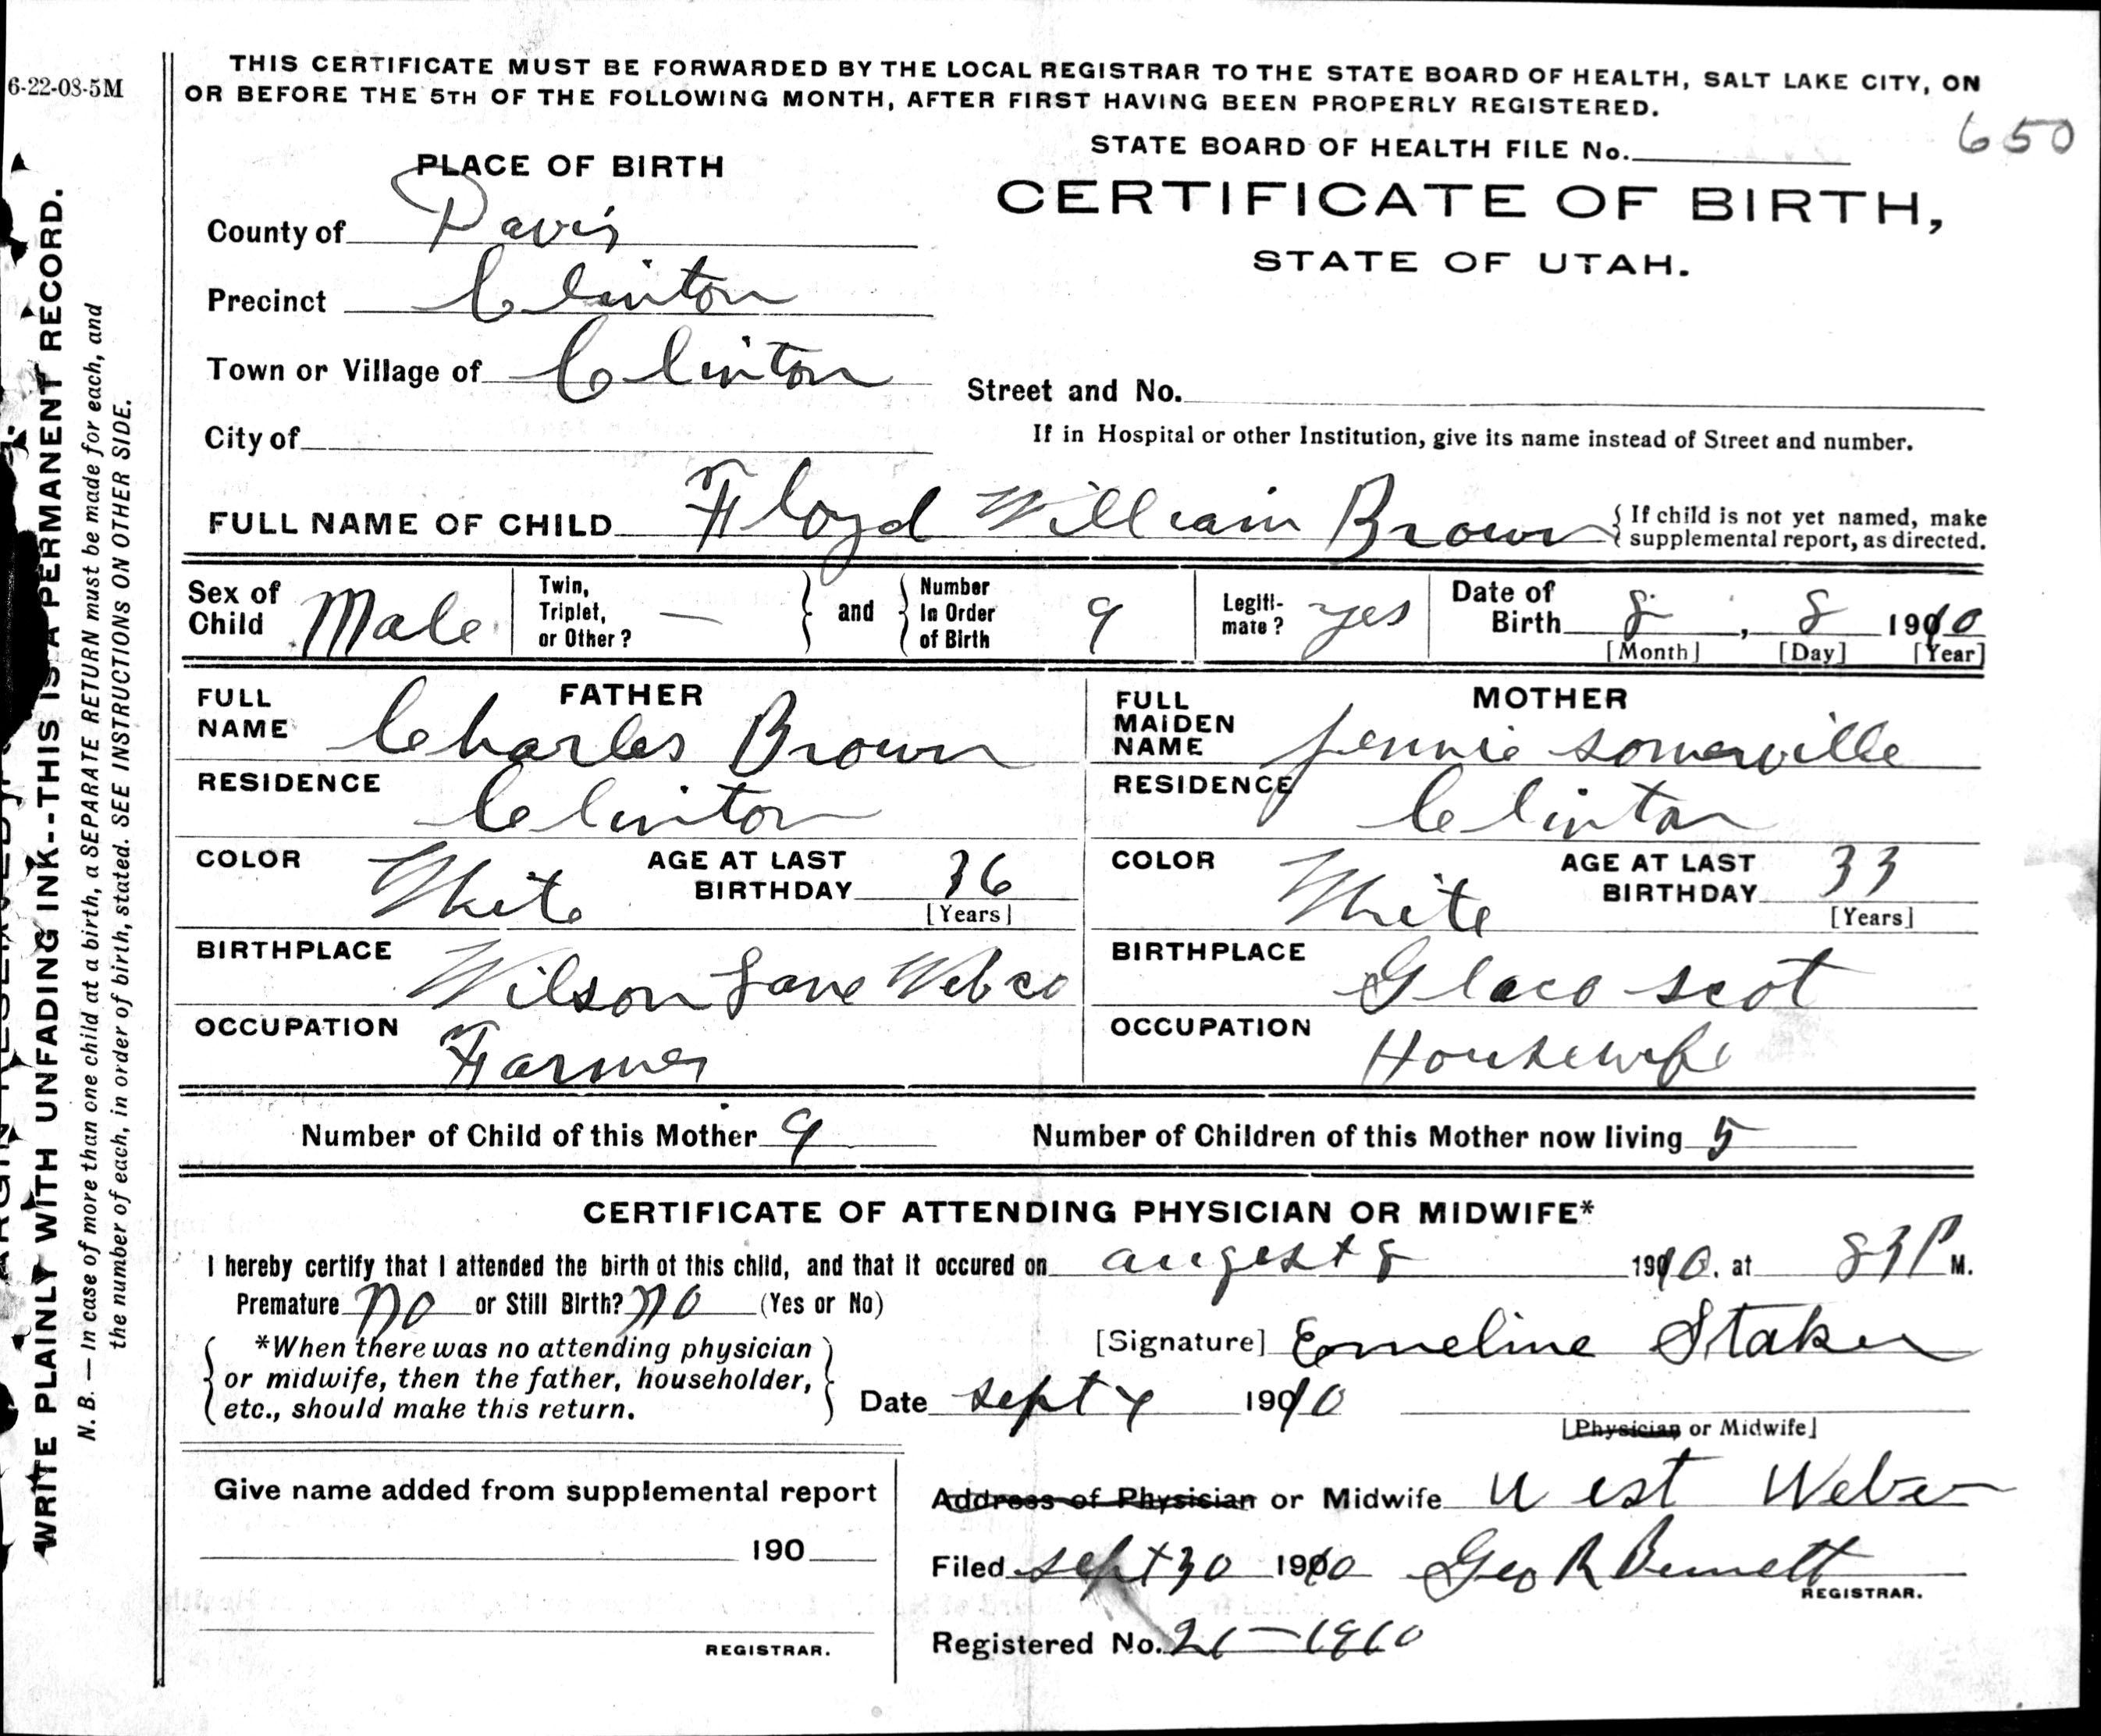 6-22-08-5M
THIS CERTIFICATE MUST BE FORWARDED BY THE LOCAL REGISTRAR TO THE STATE BOARD OF HEALTH, SALT LAKE CITY, ON
OR BEFORE THE 5TH OF THE FOLLOWING MONTH, AFTER FIRST HAVING BEEN PROPERLY REGISTERED.
650
STATE BOARD OF HEALTH FILE No.
CERTIFICATE OF BIRTH,
STATE OF UTAH.
PLACE OF BIRTH
County of Davis
Precinct Clinton
Town or Village of Clinton
Street and No.
City of
If in Hospital or other Institution, give its name instead of Street and number.
FULL NAME OF CHILD Floyd William Brown { If child is not yet named, make
supplemental report, as directed.
Sex of Child Male Twin, Triplet, or Other? — } and { Number In Order of Birth 9 Legiti-mate? yes Date of Birth 8, 8 1910
[Month] [Day] [Year]
FATHER
FULL NAME Charles Brown
RESIDENCE Clinton
COLOR White AGE AT LAST BIRTHDAY 36
[Years]
BIRTHPLACE Wilson Lane Web co
OCCUPATION Farmer
MOTHER
FULL MAIDEN NAME Jennie Somerville
RESIDENCE Clinton
COLOR White AGE AT LAST BIRTHDAY 33
[Years]
BIRTHPLACE Glaco Scot
OCCUPATION Housewife
Number of Child of this Mother 9 Number of Children of this Mother now living 5
CERTIFICATE OF ATTENDING PHYSICIAN OR MIDWIFE*
I hereby certify that I attended the birth of this child, and that it occured on augest 8 1910. at 83 P M.
Premature no or Still Birth? no (Yes or No)
*When there was no attending physician
or midwife, then the father, householder,
etc., should make this return.
[Signature] Emeline Staker
Date Sept 4 1910
[Physician or Midwife]
Give name added from supplemental report
190
REGISTRAR.
Address of Physician or Midwife West Weber
Filed Sept 30 1910 Geo R Bennett
REGISTRAR.
Registered No. 21-1910
WRITE PLAINLY WITH UNFADING INK--THIS IS A PERMANENT RECORD.
N. B. — In case of more than one child at a birth, a SEPARATE RETURN must be made for each, and
the number of each, in order of birth, stated. SEE INSTRUCTIONS ON OTHER SIDE.